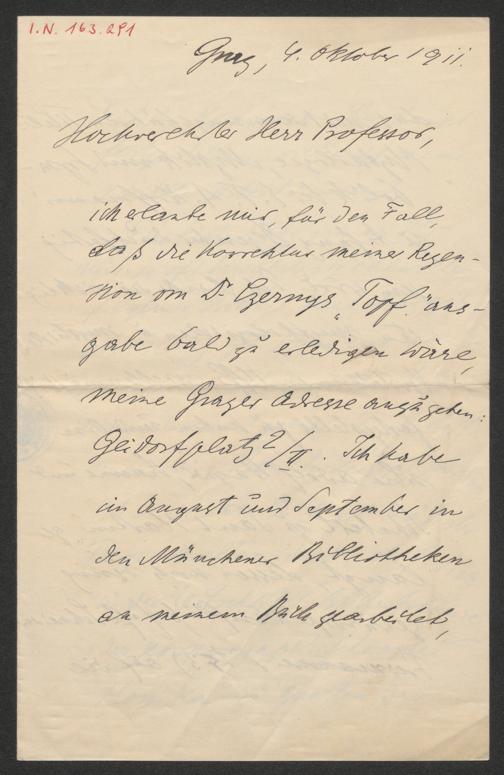 I.N. 163.291
Graz, 4. Oktober 1911.
Hochverehrter Herr Professor,
ich erlaube mir, für den Fall,
daß die Korrektur meiner Rezen-
sion von Dr. Czernys „Topf"aus-
gabe bald zu erledigen wäre,
meine Grazer Adresse anzugeben:
Geidorfplatz 2/II. Ich habe
im August und September in
den Münchener Bibliotheken
an meinem Buch gearbeitet,